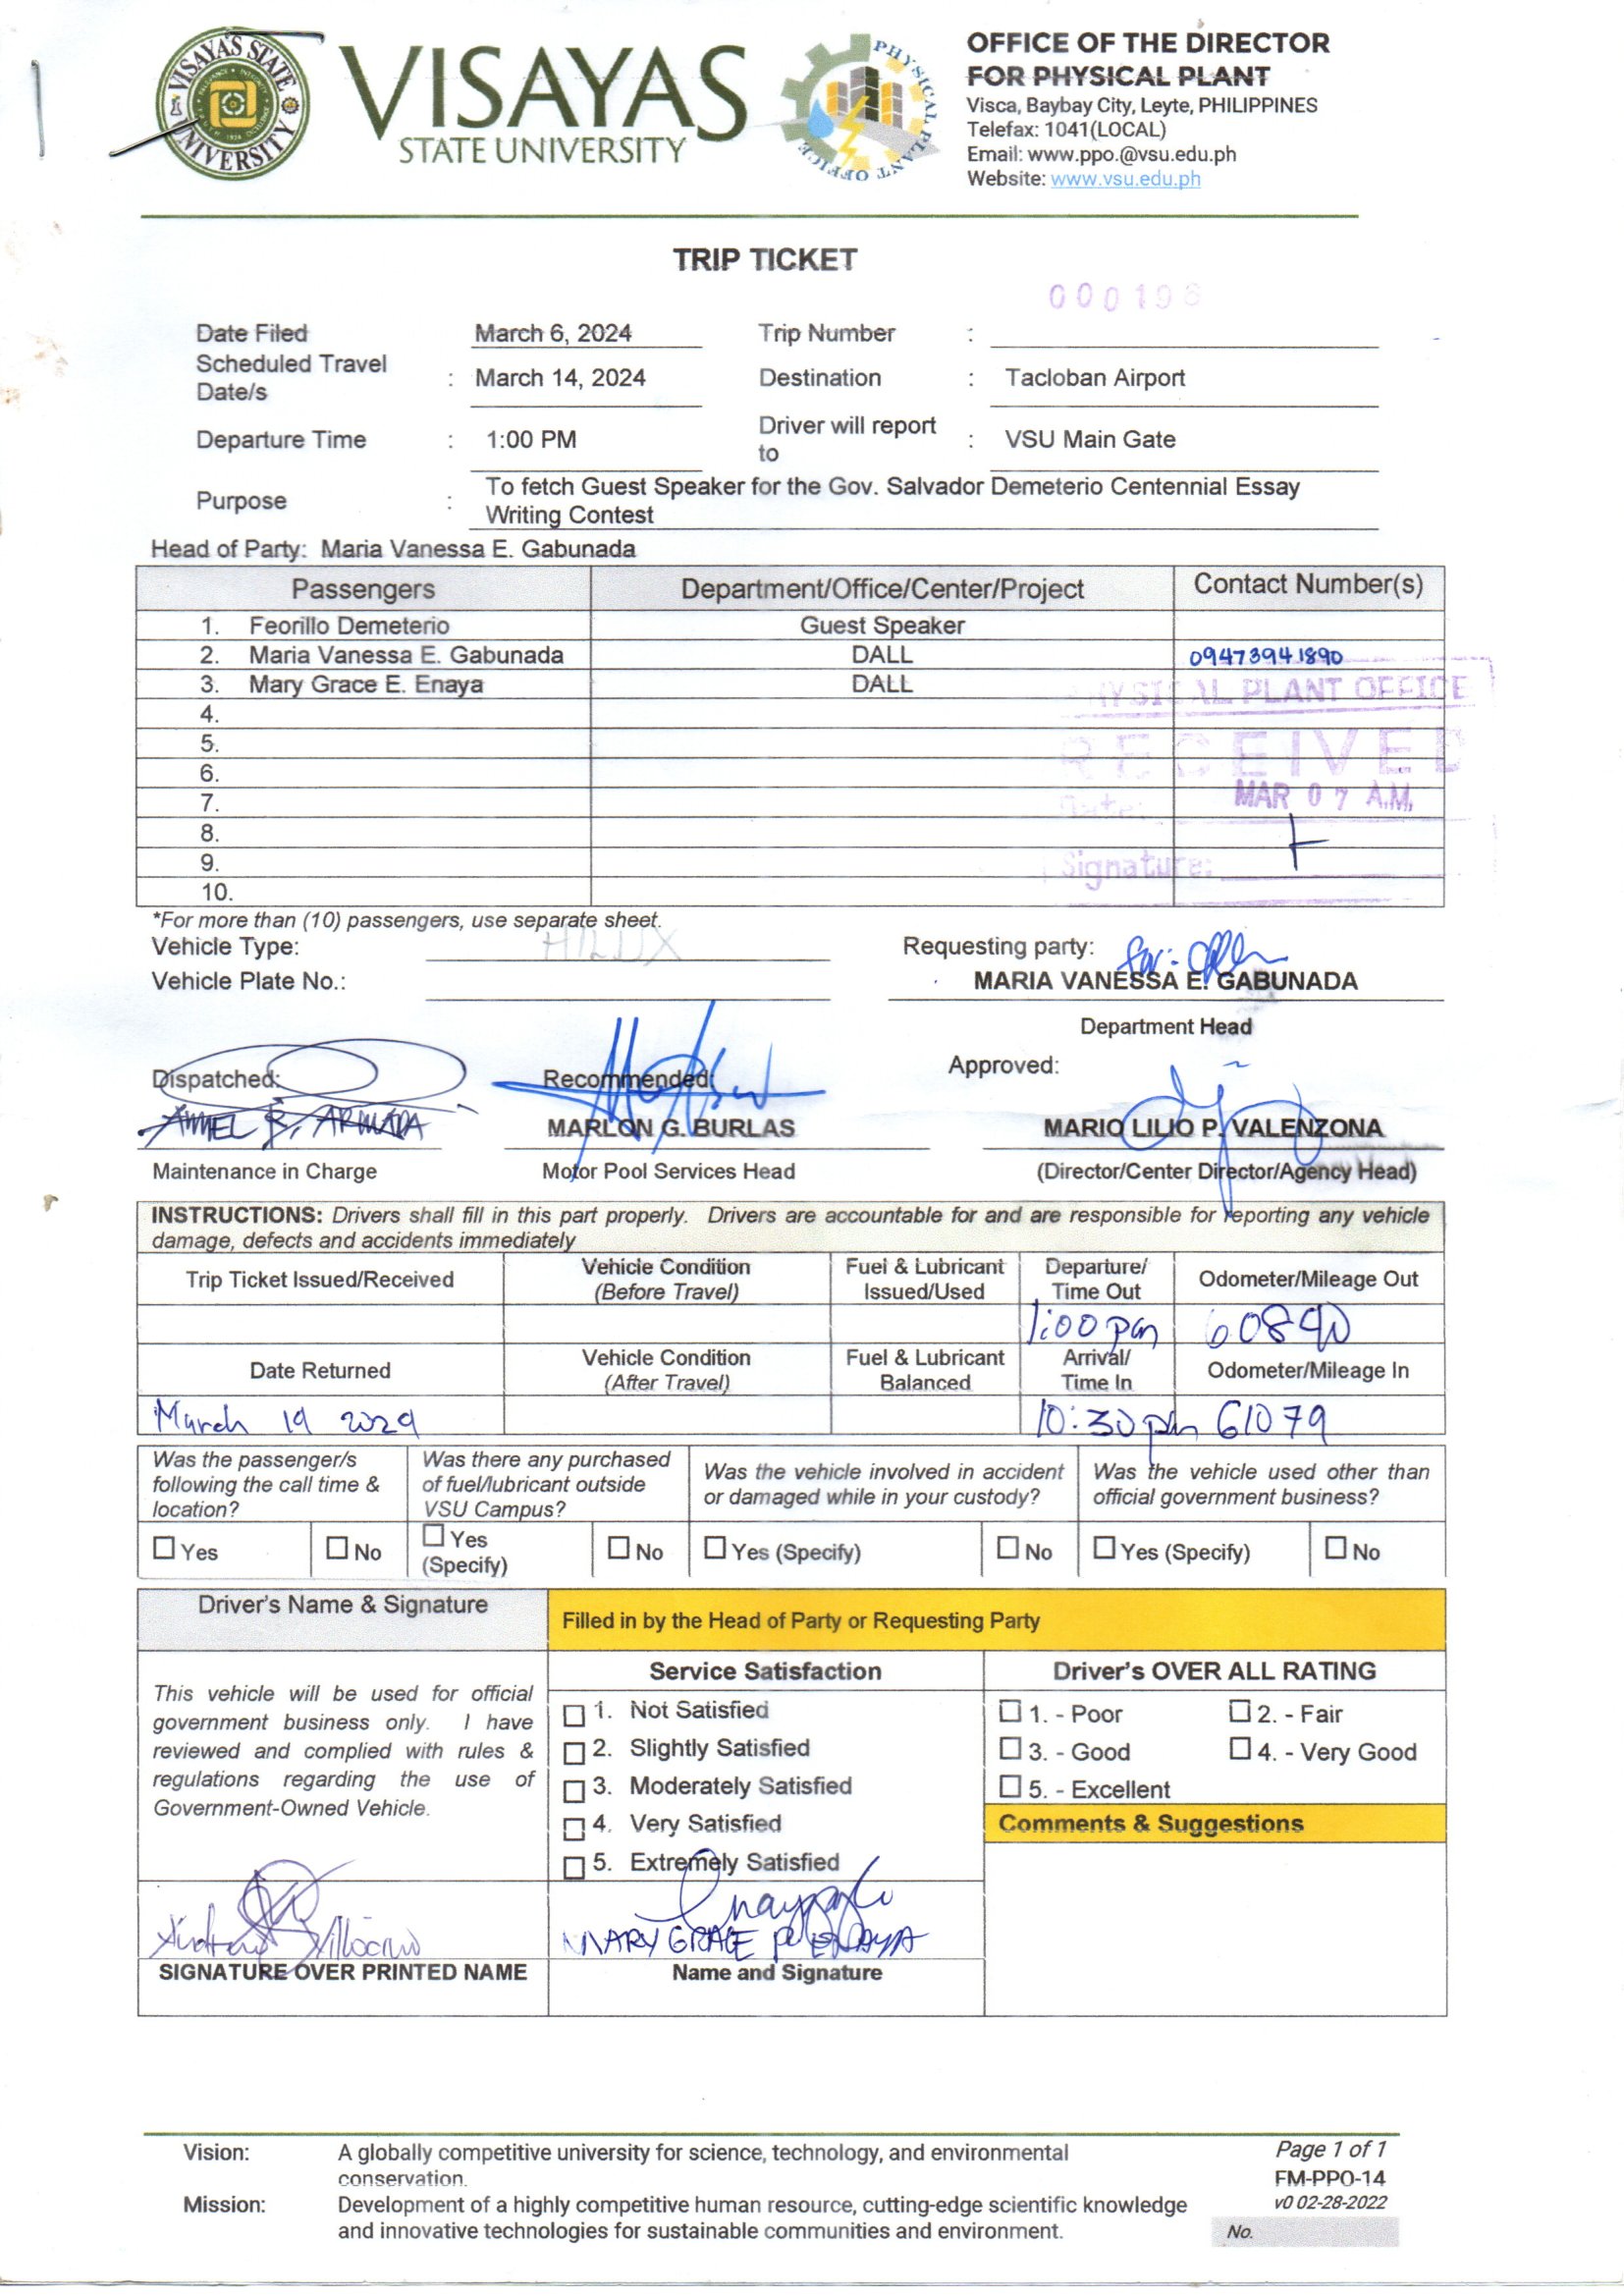 VISAYAS STATE UNIVERSITY
VISAYAS
STATE UNIVERSITY
PHYSICAL PLANT OFFICE
OFFICE OF THE DIRECTOR
FOR PHYSICAL PLANT
Visca, Baybay City, Leyte, PHILIPPINES
Telefax: 1041(LOCAL)
Email: www.ppo.@vsu.edu.ph
Website: www.vsu.edu.ph
TRIP TICKET
Date Filed March 6, 2024 Trip Number :
Scheduled Travel Date/s : March 14, 2024 Destination : Tacloban Airport
Departure Time : 1:00 PM Driver will report to : VSU Main Gate
Purpose : To fetch Guest Speaker for the Gov. Salvador Demeterio Centennial Essay
Writing Contest
Head of Party: Maria Vanessa E. Gabunada
Passengers Department/Office/Center/Project Contact Number(s)
1. Feorillo Demeterio Guest Speaker
2. Maria Vanessa E. Gabunada DALL 09473941890
3. Mary Grace E. Enaya DALL
4.
5.
6.
7.
8.
9.
10.
PLANT OFFICE
RECEIVED
Date: MAR 07 A.M.
Signature:
*For more than (10) passengers, use separate sheet.
Vehicle Type: HILUX Requesting party: for:
Vehicle Plate No.: MARIA VANESSA E. GABUNADA
Department Head
Dispatched: Recommended: Approved:
ARMADA MARLON G. BURLAS MARIO LILIO P. VALENZONA
Maintenance in Charge Motor Pool Services Head (Director/Center Director/Agency Head)
INSTRUCTIONS: Drivers shall fill in this part properly. Drivers are accountable for and are responsible for reporting any vehicle
damage, defects and accidents immediately
Trip Ticket Issued/Received Vehicle Condition (Before Travel) Fuel & Lubricant Issued/Used Departure/ Time Out Odometer/Mileage Out
1:00 pm 60890
Date Returned Vehicle Condition (After Travel) Fuel & Lubricant Balanced Arrival/ Time In Odometer/Mileage In
March 14 2024 10:30 pm 61079
Was the passenger/s following the call time & location? Was there any purchased of fuel/lubricant outside VSU Campus? Was the vehicle involved in accident or damaged while in your custody? Was the vehicle used other than official government business?
Yes No Yes (Specify) No Yes (Specify) No Yes (Specify) No
Driver's Name & Signature Filled in by the Head of Party or Requesting Party
This vehicle will be used for official
government business only. I have
reviewed and complied with rules &
regulations regarding the use of
Government-Owned Vehicle.
Service Satisfaction
1. Not Satisfied
2. Slightly Satisfied
3. Moderately Satisfied
4. Very Satisfied
5. Extremely Satisfied
Driver's OVER ALL RATING
1. - Poor 2. - Fair
3. - Good 4. - Very Good
5. - Excellent
Comments & Suggestions
MARY GRACE ENAYA
SIGNATURE OVER PRINTED NAME Name and Signature
Vision: A globally competitive university for science, technology, and environmental
conservation.
Mission: Development of a highly competitive human resource, cutting-edge scientific knowledge
and innovative technologies for sustainable communities and environment.
Page 1 of 1
FM-PPO-14
v0 02-28-2022
No.